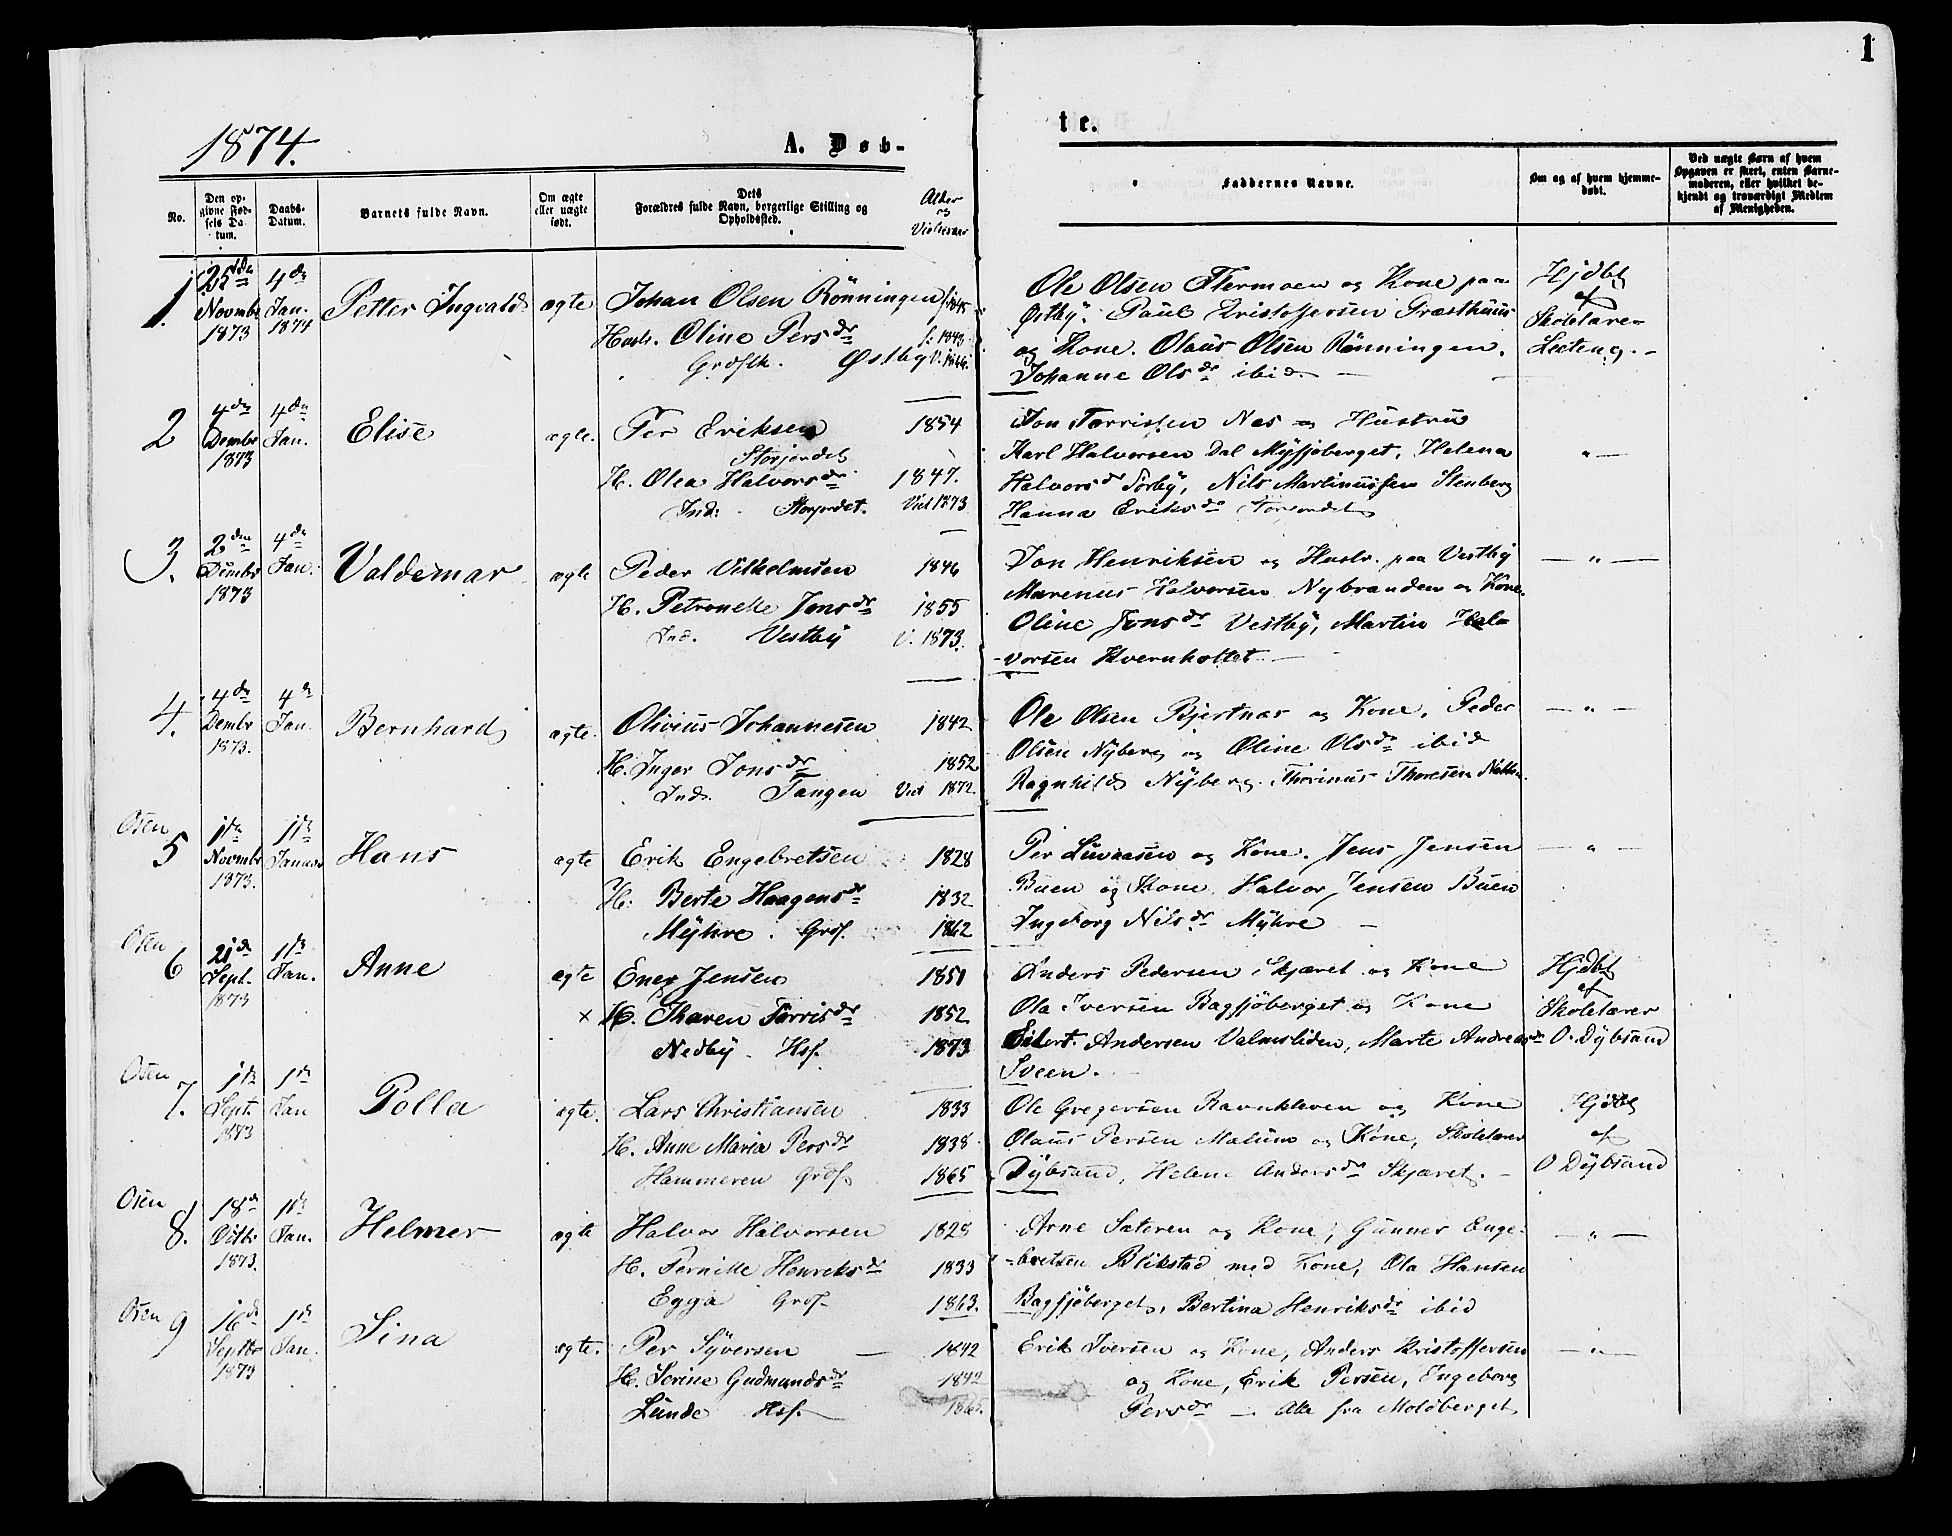 1
1874.
A. Døb-
te.
No.
Den op-
givne Fød-
sels Da-
tum.
Daabs-
Datum.
Barnets fulde Navn.
Om ægte
eller uægte
født.
Dets
Forældres fulde Navn, borgerlige Stilling og
Opholdssted.
Alder
og
Faddernes Navne.
Om og af hvem hjemme-
døbt.
Ved uægte Børn af hvem
Opgaven er skeet, enten Barne-
moderen, eller hvilket be-
kjendt og troværdigt Medlem
af Menigheden.
1. 25de Novmbr 1873
4de Jan. 1874
Petter Ingvald
ægte
Johan Olsen Rönningen f. 1845
Hustr. Oline Persdr f. 1843
Østby
Ole Olsen Flermoen og Kone paa
Østby. Paul Kristoffersen Præsthuus
og Kone. Olaus Olsen Rönningen.
Johanne Olsdr ibid.
Hjdbt
af
Skolelærer
2 4de Dembr 1873
4de Jan.
Elise
ægte.
Per Eriksen 1854
Storjordet
H. Olea Halvorsdr 1847.
Ind. Storjordet. Viel 1873
Jon Tarrissen Næs og Hustru
Karl Halvorsen Dal Myssjøberget, Helena
Halvorsdr Sörby, Nils Martinussen Stenberg
Hanna Eriksdr Storjordet
" —
3. 2den Dembr 1873
4de Jan.
Valdemar
ægte
Peder Vilhelmsen 1846
H. Petronelle Jonsdr 1855
Ind. Vestby V. 1873.
Jon Henriksen og Hustr. paa Vestby
Marenus Halvorsen Nybranden og Kone
Oline Jonsdr Vestby, Martin Hal-
vorsen Kvernholtet
— " —
4. 4de Dembr 1873.
4de Jan.
Bernhard
ægte.
Olivius Johannesen 1842
H. Inger Jonsdr 1852
Ind. Tangen Viel 1872.
Ole Olsen Bjertnæs og Kone. Peder
Olsen Nyberg og Oline Olsdr ibid
Ragnhild Nyberg. Thorinus Thoresen
— " —
Osen
5 1ste Novmbr 1873.
1ste Januar
Hans
ægte
Erik Engebretsen 1828
H. Berte Haagensdr 1832
Myhre. Grdf. 1862
Per og Kone. Jens Jensen
Buen og Kone. Halvor Jensen Buen
Ingeborg Nilsdr Myhre —
— " —
Osen
6 21de Sept. 1873
1ste Jan.
Anne
ægte
Ener Jensen 1851
× H. Karen Tarrisdr 1852
Nedby. Hsf. 1873
Anders Pedersen Skjæret og Kone
Ola Iversen Bagsjöberget og Kone
Eilert Andersen Valmsliden, Marte Andreasdr
Sveen.
Hjdbt
af
Skolelærer
O. Dybsand
Osen
7. 1ste Sept. 1873
1ste Jan
Polla
ægte.
Lars Christiansen 1833
H. Anne Maria Persdr 1838
Hammeren Grdf. 1865
Ole Gregersen Ravnkleven og Kone
Olaus Persen Malum og Kone, Skolelærer
Dybsand, Helene Andersdr Skjæret. —
Hjdbt
af
O Dybsand
Osen
8. 18de Octbr 1873.
1ste Jan.
Helmer
ægte
Halvor Halvorsen 1828
H. Pernille Henriksdr 1833
Egga Grdf. 1863.
Arne Sæteren og Kone, Gunner Enge-
bretsen Blikstad med Kone, Ola Hansen
Bagsjöberget, Bertina Henriksdr ibid
— " —
Osen
9 16de Septbr 1873
1ste Jan.
Sina
ægte.
Per Syversen — 1842
H. Serine Gudmundsdr 1842
Lunde Hsf. 1865.
Erik Iversen og Kone, Anders Kristoffersen
og Kone, Erik Persen, Engeborg
Persdr — Alle fra Moldberget
— " —